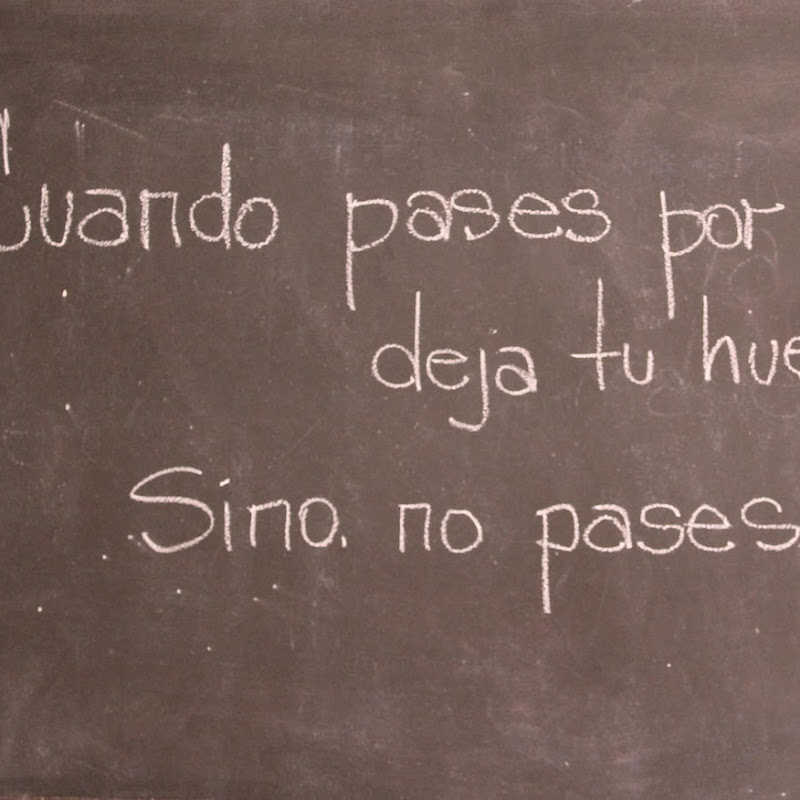 Cuando pases por
deja tu hue
Sino. no pases